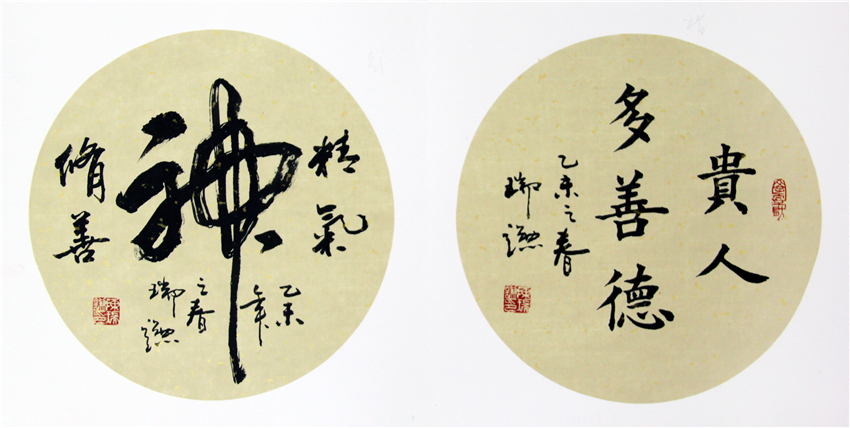 貴人
多善德
乙未之春
瑞
精氣
神
脩善
乙未
年
之春
瑞